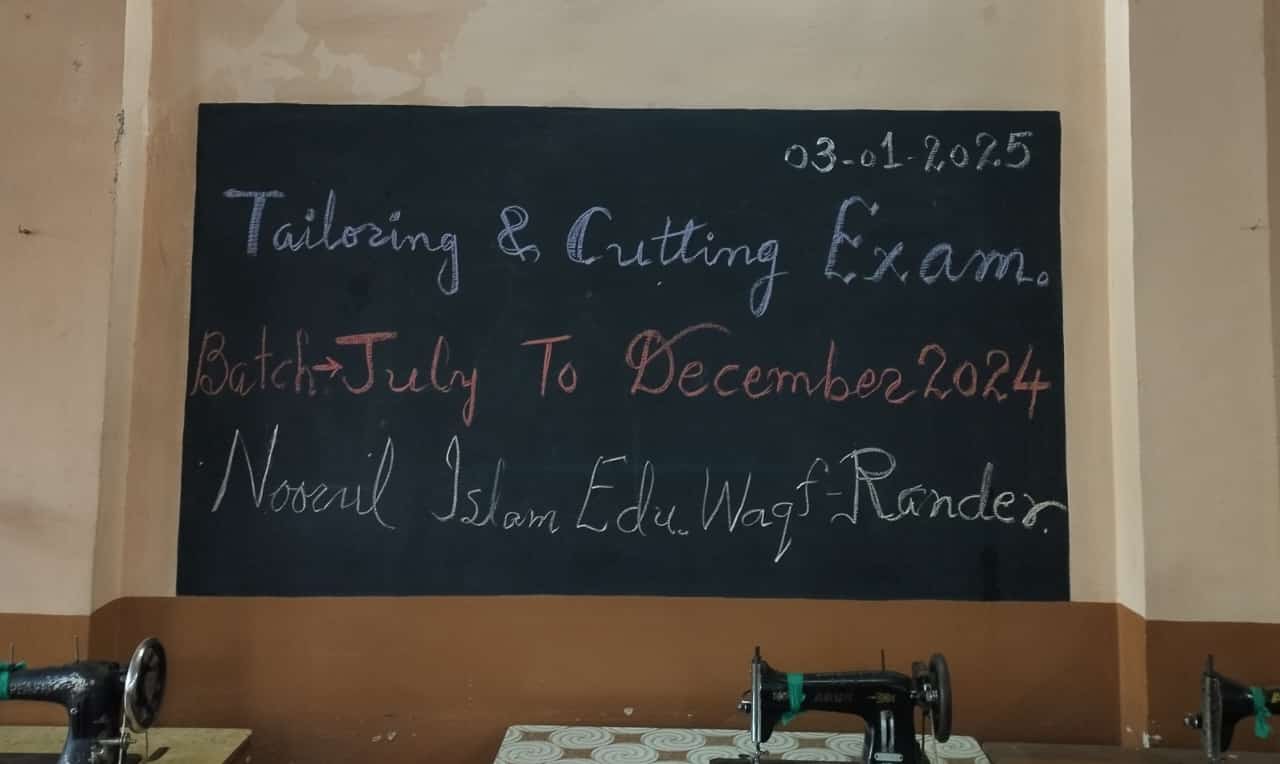 03-01-2025
Tailoring & Cutting Exam.
Batch→July To December 2024
Noorul Islam Edu. Waqf-Rander.